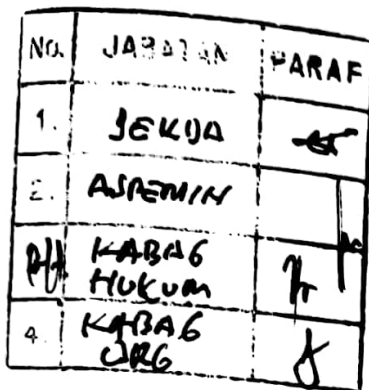 No. JABATAN PARAF
1. SEKDA
2. ASPEMIN
KABAG
HUKUM
4. KABAG
ORG